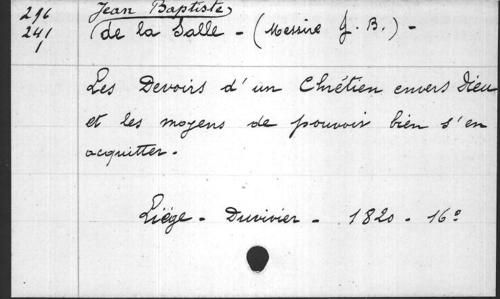 296 Jean Baptiste
241 (de la Salle - (Messire J. B.) -
1
Les Devoirs d'un Chrétien envers Dieu
et les moyens de pouvoir bien s'en
acquitter.
Liège - Duvivier - 1820 - 16°